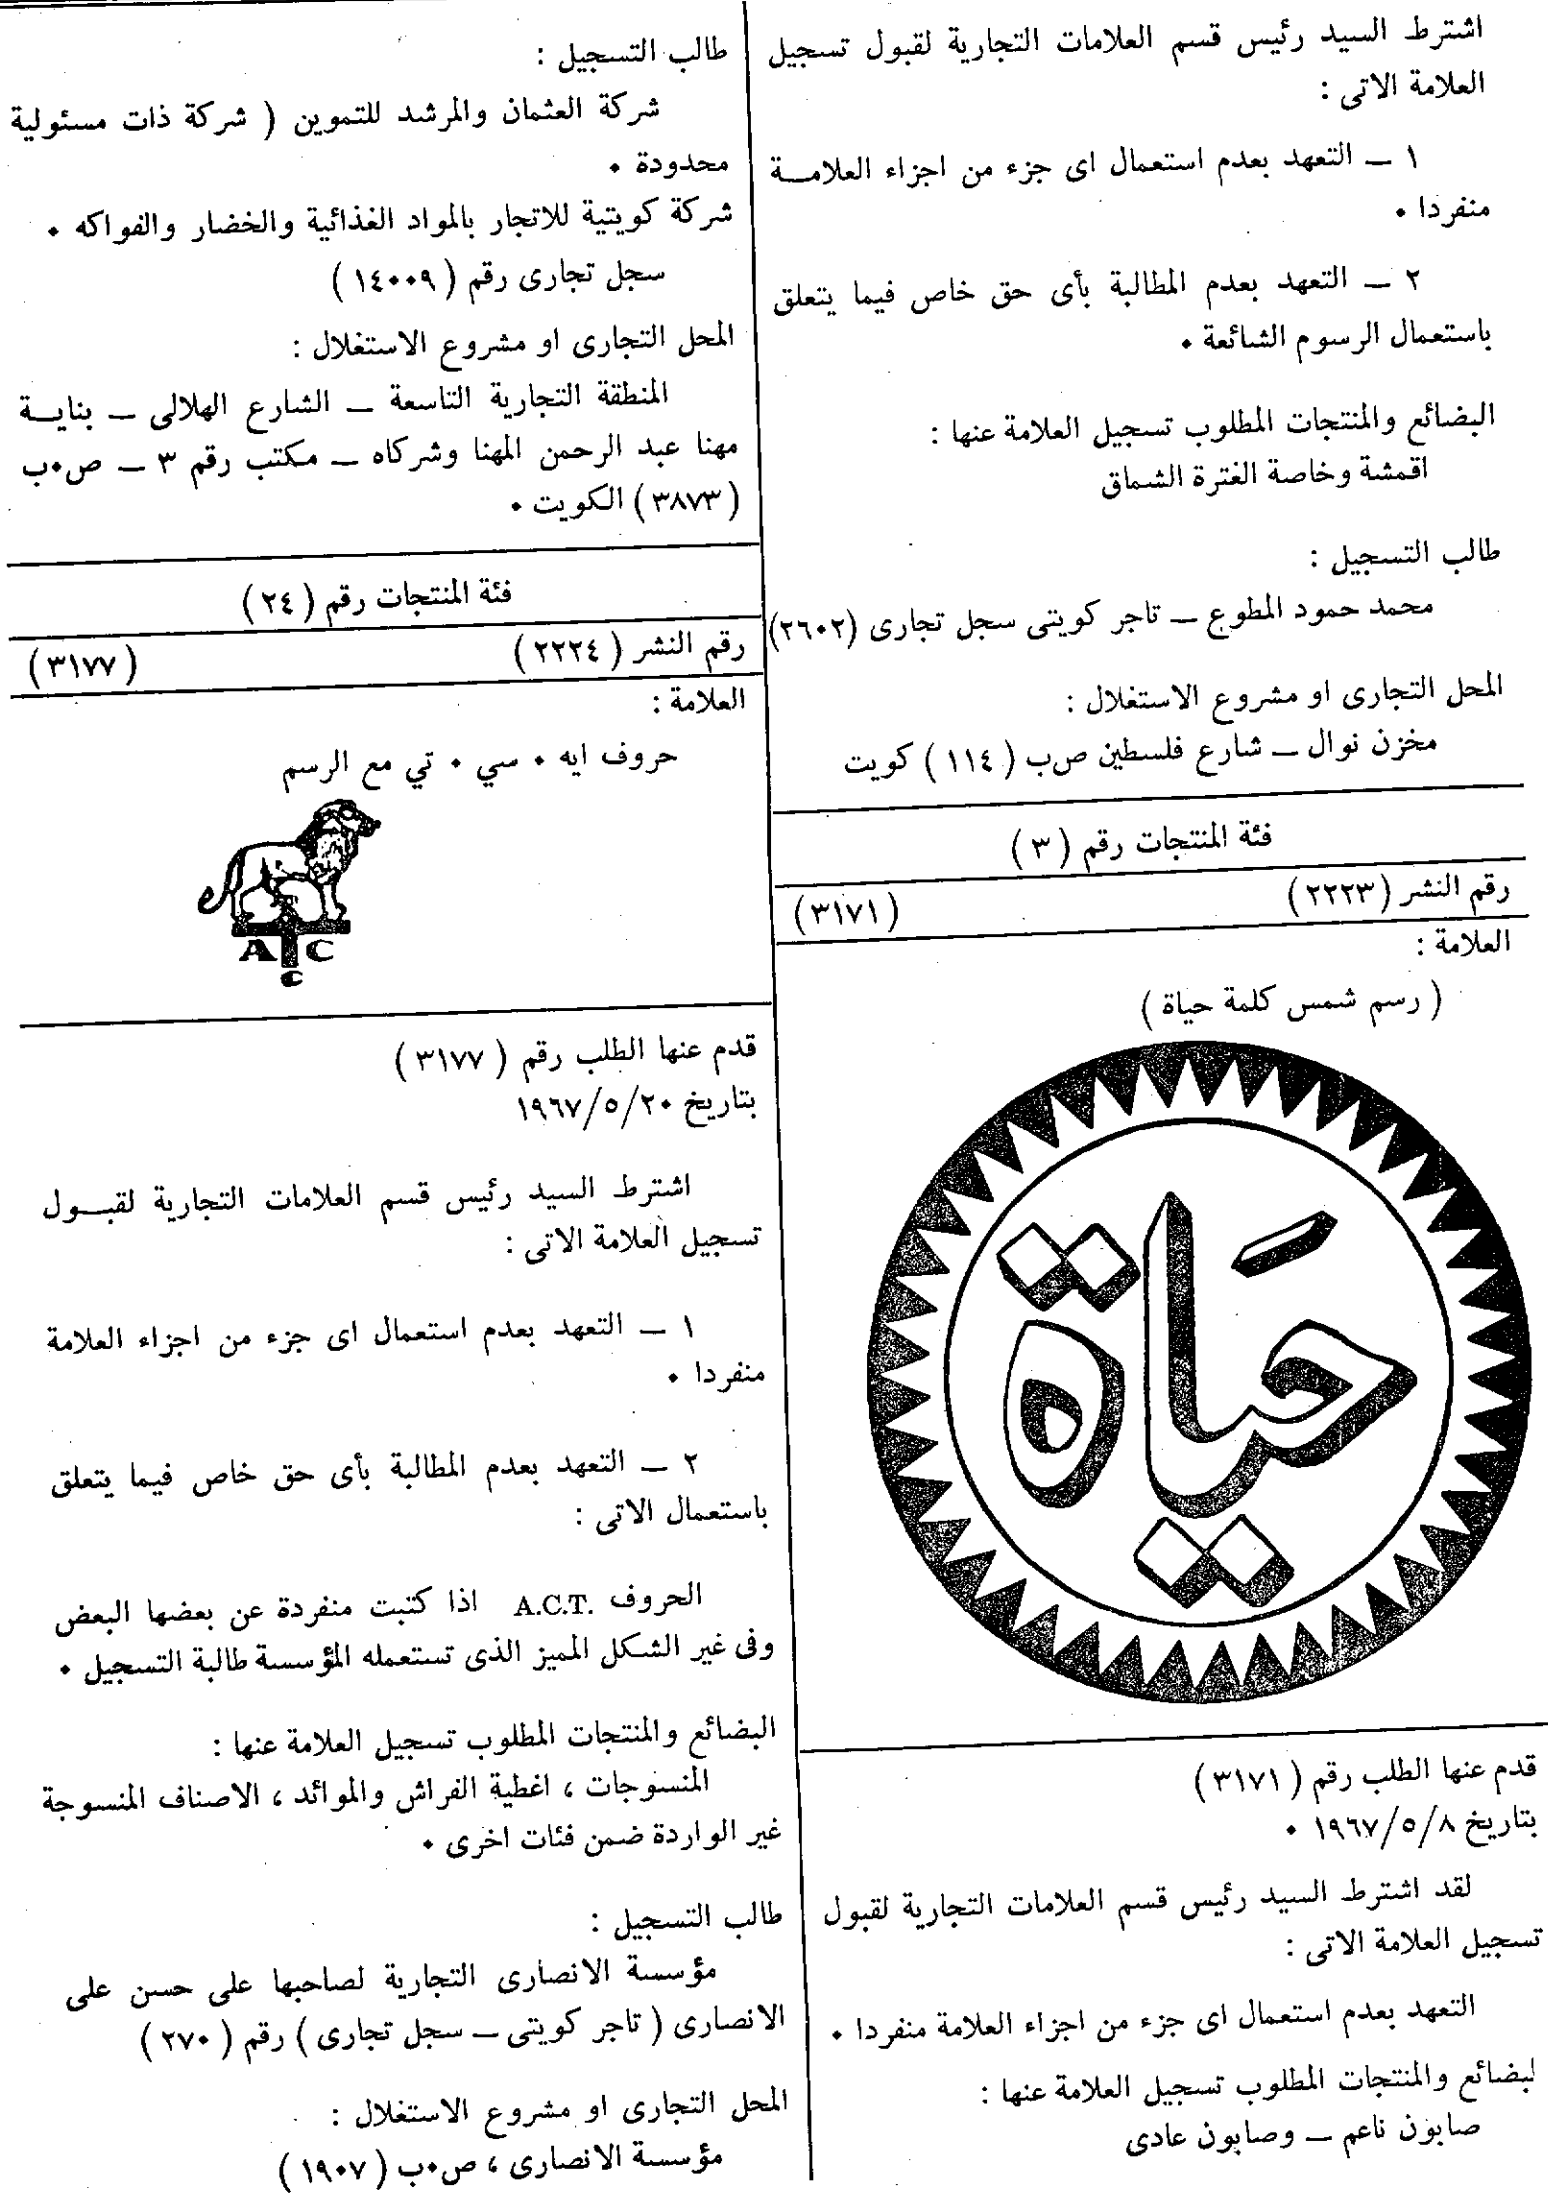 اشترط السيد رئيس قسم العلامات التجارية لقبول تسجيل
العلامة الاتى :
١ ــ التعهد بعدم استعمال اى جزء من اجزاء العلامــة
منفردا ٠
٢ ــ التعهد بعدم المطالبة بأى حق خاص فيما يتعلق
باستعمال الرسوم الشائعة ٠
البضائع والمنتجات المطلوب تسجيل العلامة عنها :
اقمشة وخاصة الغترة الشماق
طالب التسجيل :
محمد حمود المطوع ــ تاجر كويتى سجل تجارى (٢٦٠٢)
المحل التجارى او مشروع الاستغلال :
مخزن نوال ــ شارع فلسطين ص٠ب ( ١١٤ ) كويت
فئة المنتجات رقم ( ٣ )
رقم النشر ( ٢٢٢٣ ) ( ٣١٧١ )
العلامة :
( رسم شمس كلمة حياة )
حَياة
قدم عنها الطلب رقم ( ٣١٧١ )
بتاريخ ١٩٦٧/٥/٨ ٠
لقد اشترط السيد رئيس قسم العلامات التجارية لقبول
تسجيل العلامة الاتى :
التعهد بعدم استعمال اى جزء من اجزاء العلامة منفردا ٠
لبضائع والمنتجات المطلوب تسجيل العلامة عنها :
صابون ناعم ــ وصابون عادى
طالب التسجيل :
شركة العثمان والمرشد للتموين ( شركة ذات مسئولية
محدودة ٠
شركة كويتية للاتجار بالمواد الغذائية والخضار والفواكه ٠
سجل تجارى رقم ( ١٤٠٠٩ )
المحل التجارى او مشروع الاستغلال :
المنطقة التجارية التاسعة ــ الشارع الهلالى ــ بنايــة
مهنا عبد الرحمن المهنا وشركاه ــ مكتب رقم ٣ ــ ص٠ب
( ٣٨٧٣ ) الكويت ٠
فئة المنتجات رقم ( ٢٤ )
رقم النشر ( ٢٢٢٤ ) ( ٣١٧٧ )
العلامة :
حروف ايه ٠ سي ٠ تي مع الرسم
A T C
C
قدم عنها الطلب رقم ( ٣١٧٧ )
بتاريخ ١٩٦٧/٥/٢٠
اشترط السيد رئيس قسم العلامات التجارية لقبــول
تسجيل العلامة الاتى :
١ ــ التعهد بعدم استعمال اى جزء من اجزاء العلامة
منفردا ٠
٢ ــ التعهد بعدم المطالبة بأى حق خاص فيما يتعلق
باستعمال الاتى :
الحروف A.C.T. اذا كتبت منفردة عن بعضها البعض
وفى غير الشكل المميز الذى تستعمله المؤسسة طالبة التسجيل ٠
البضائع والمنتجات المطلوب تسجيل العلامة عنها :
المنسوجات ، اغطية الفراش والموائد ، الاصناف المنسوجة
غير الواردة ضمن فئات اخرى ٠
طالب التسجيل :
مؤسسة الانصارى التجارية لصاحبها على حسن على
الانصارى ( تاجر كويتى ــ سجل تجارى ) رقم ( ٢٧٠ )
المحل التجارى او مشروع الاستغلال :
مؤسسة الانصارى ، ص٠ب ( ١٩٠٧ )